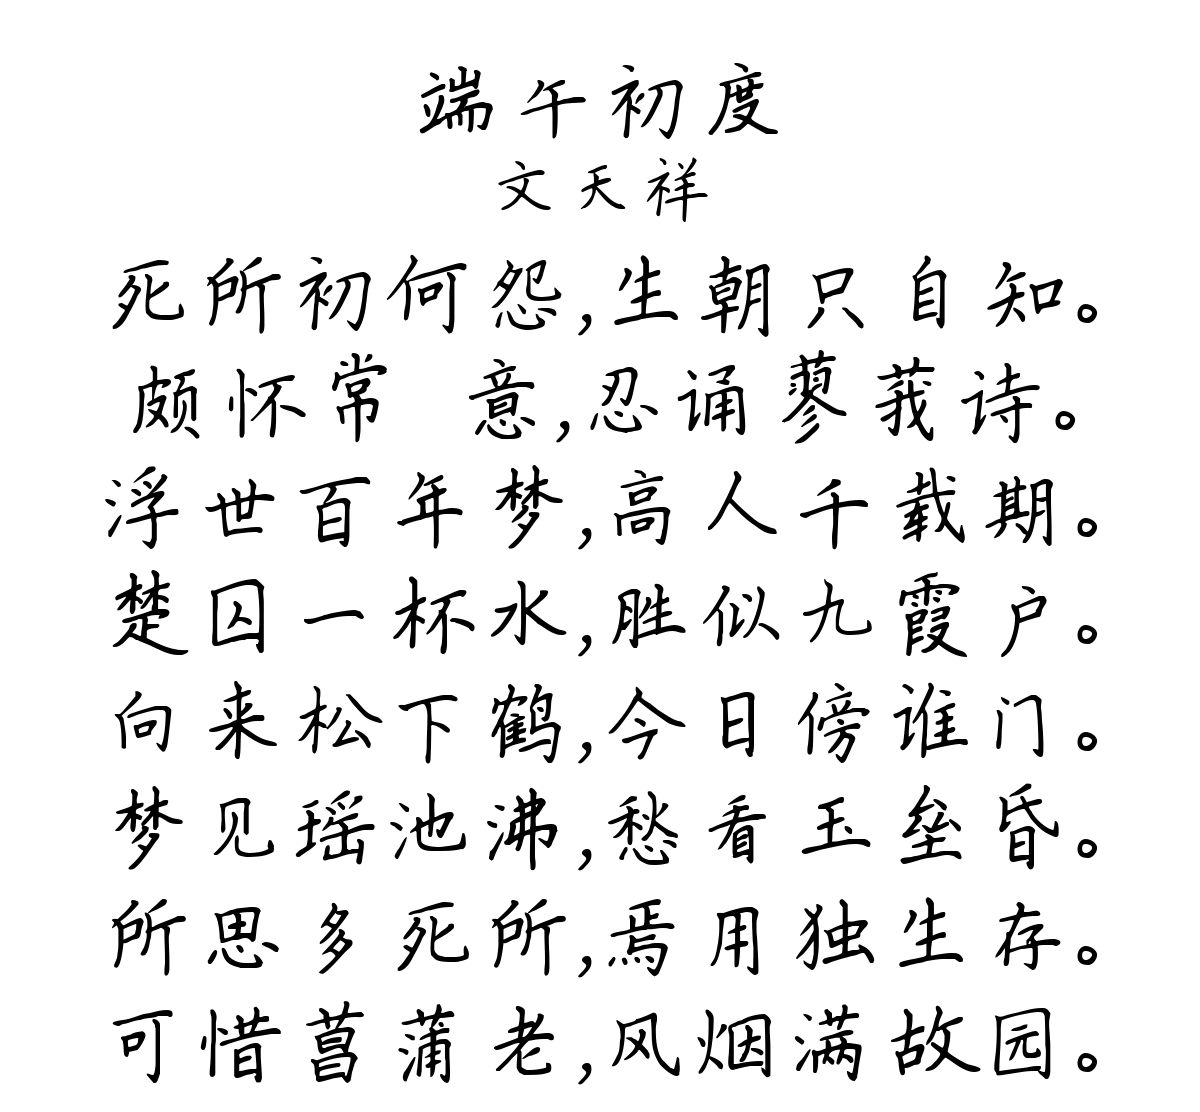 端午初度
文天祥
死所初何怨,生朝只自知。
颇怀常 意,忍诵蓼莪诗。
浮世百年梦,高人千载期。
楚囚一杯水,胜似九霞户。
向来松下鹤,今日傍谁门。
梦见瑶池沸,愁看玉垒昏。
所思多死所,焉用独生存。
可惜菖蒲老,风烟满故园。